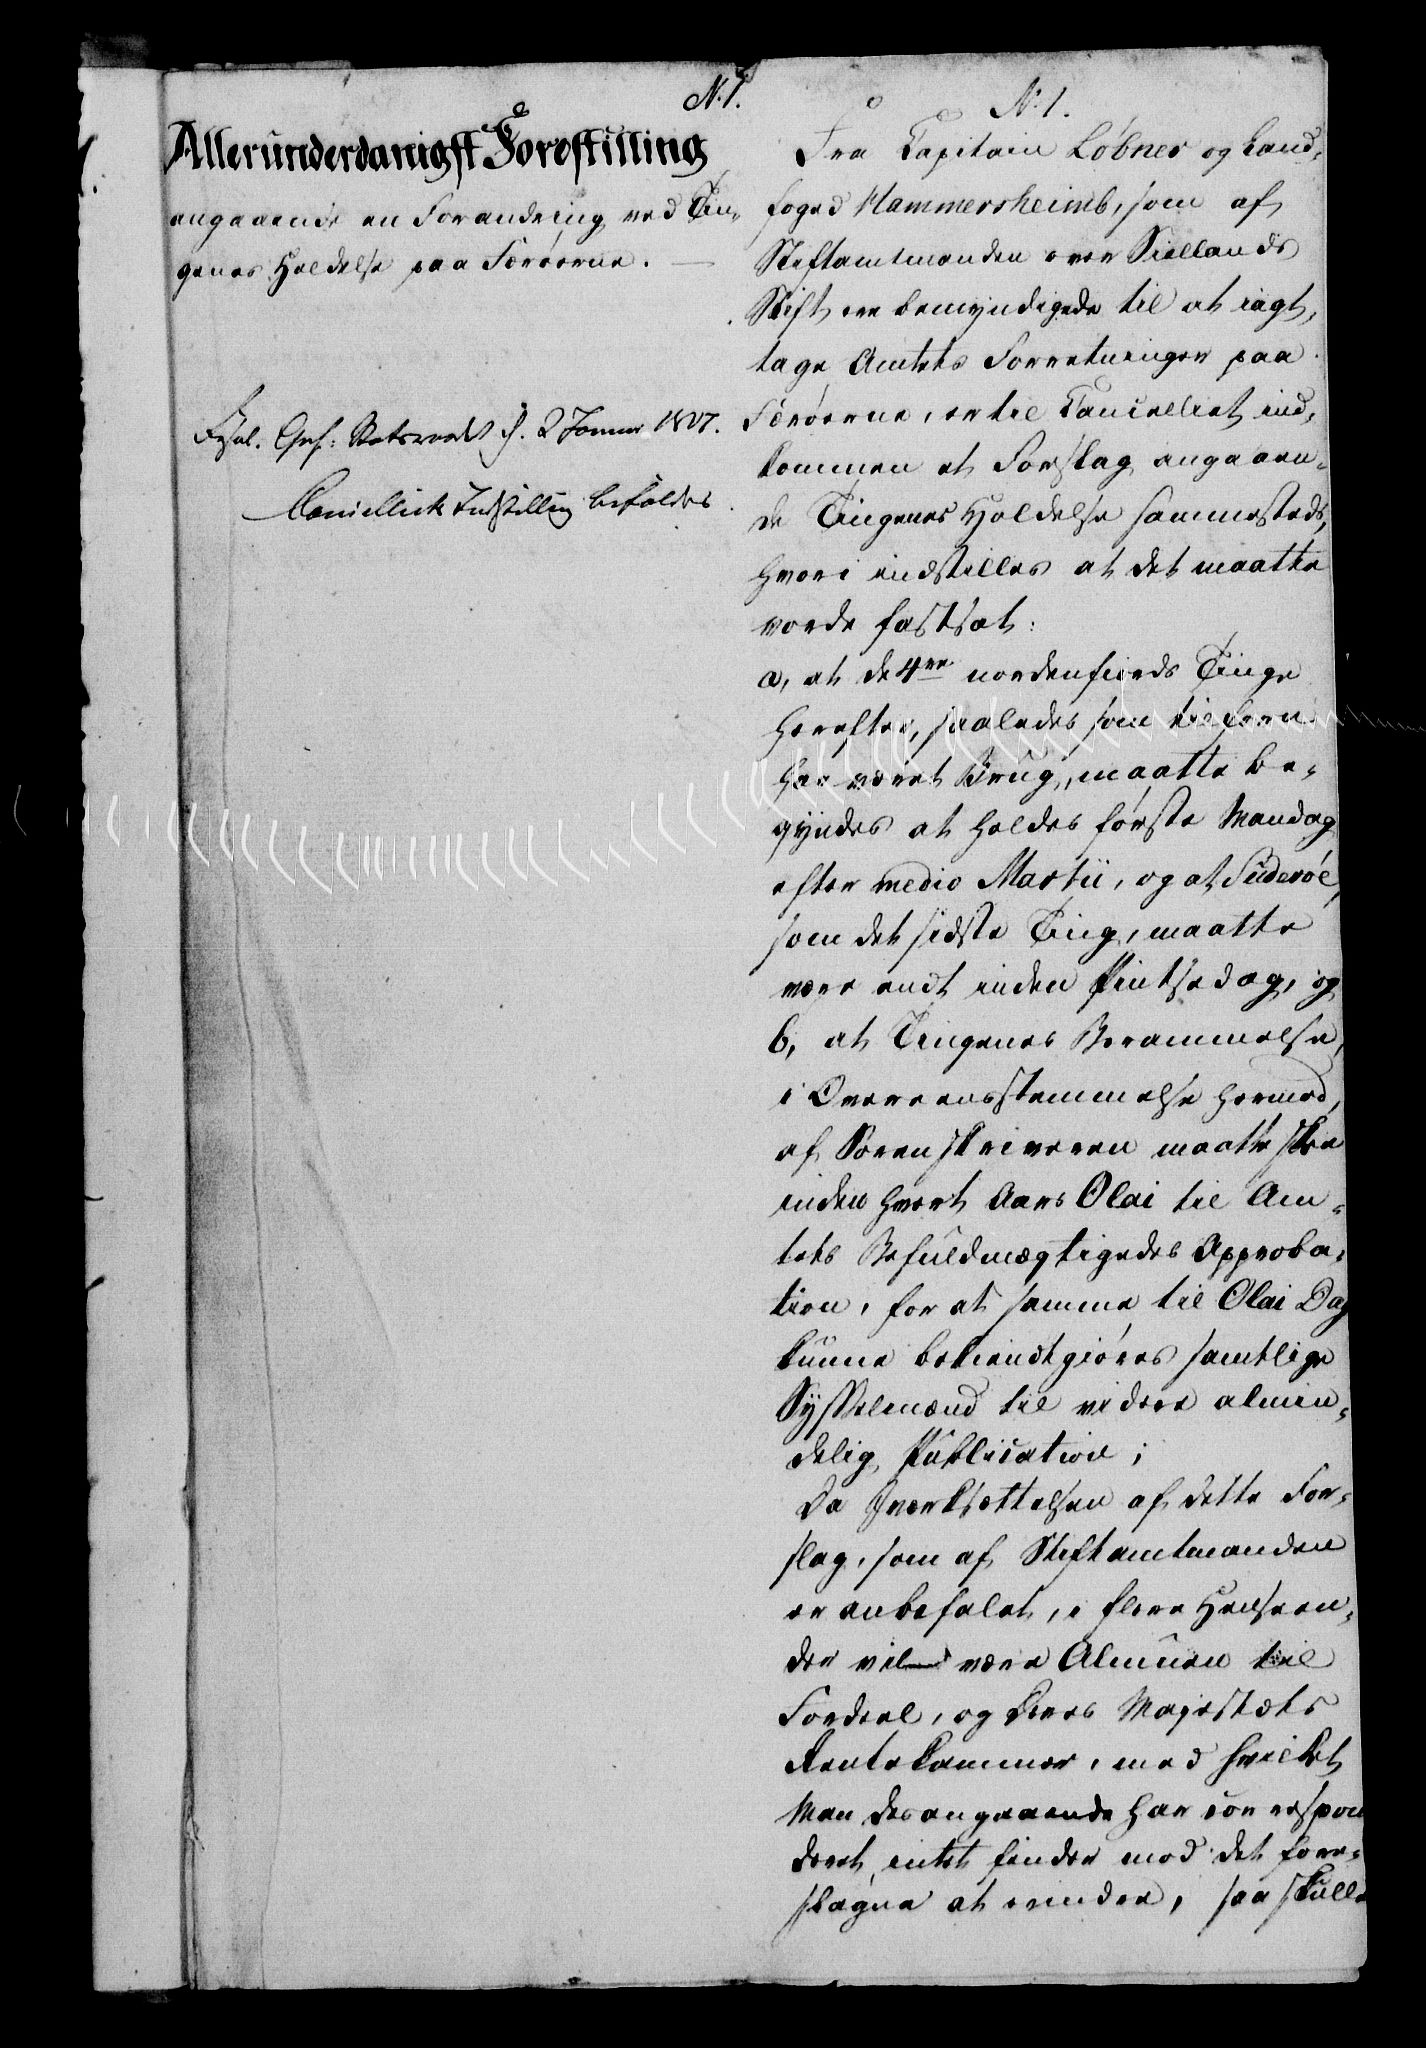 N. 1.
Allerunderdanigst Forestilling
angaaende en Forandring ved Tin-
genes Holdelse paa Færöerne.
Geh: Statsraadet d. 2 Januar 1807.
Cancelliets Indstilling bifaldes
N. 1.
Fra Capitain Løbner og Land-
foged Hammersheimb, som af
Stiftamtmanden over Siellands
Stift ere bemyndigede til at iagt-
tage Amtets Forretninger paa
Færöerne, er til Cancelliet ind-
kommen et Forslag angaaen-
de Tingenes Holdelse sammesteds,
hvori indstilles at det maatte
vorde fastsat:
a, at de 4re nordenfiords Tinge
herefter, saaledes som tilforn
har været Brug, maatte be-
gyndes at holdes første Mandag
efter medio Martii, og at Suderöe,
som det sidste Ting, maatte
være endt inden Pintsedag, og
b, at Tingenes Berammelse,
i Overeensstemmelse hermed,
af Sorenskriveren maatte skee
inden hvert Aars Olai til Am-
tets Befuldmægtigedes Approba-
tion, for at samme til Olai Dag
kunne bekiendtgiöres samtlige
Sysselmænd til videre almin-
delig Publication;
Da Iværksættelsen af dette For-
slag, som af Stiftamtmanden
er anbefalet, i flere Henseen-
der vil være Almuen til
Fordeel, og Deres Majestæts
Rentekammer, med hvilket
Man desangaaende har correspon
deret, intet finder mod det fore-
slagne at erindre, saa skulle